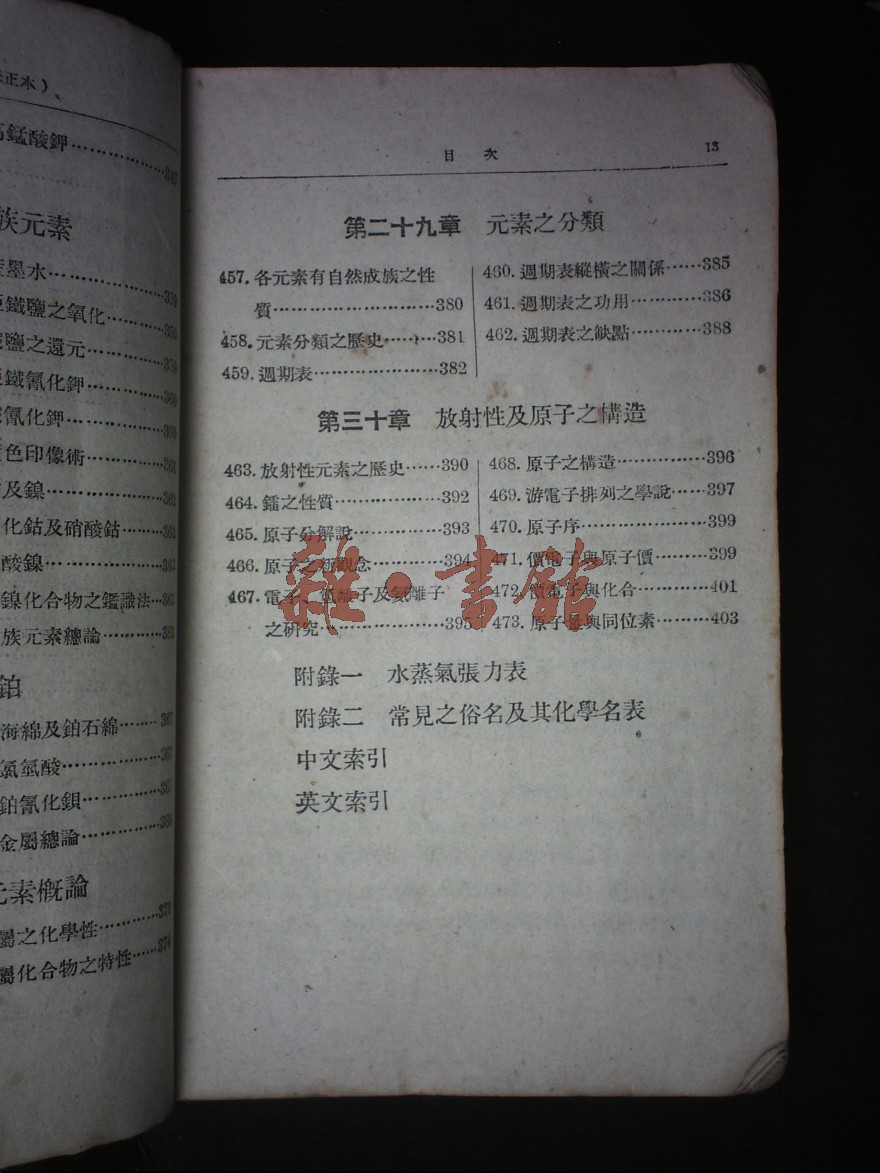 正本）
錳酸鉀……347
族元素
墨水……359
鐵鹽之氧化……359
鹽之還元……359
鐵氰化鉀……360
氰化鉀……360
色印像術……361
及鎳……361
化鈷及硝酸鈷……362
酸鎳……363
鎳化合物之鑑識法…363
族元素總論……363
鉑
海綿及鉑石綿……367
氯氫酸……367
鉑氰化鋇……367
金屬總論……368
元素概論
屬之化學性……373
屬化合物之特性……374
目 次 13
第二十九章 元素之分類
457. 各元素有自然成族之性
質……380
458. 元素分類之歷史……381
459. 週期表……382
460. 週期表縱橫之關係……385
461. 週期表之功用……386
462. 週期表之缺點……388
第三十章 放射性及原子之構造
463. 放射性元素之歷史……390
464. 鐳之性質……392
465. 原子分解說……393
466. 原子之新觀念……394
467. 電子、氫離子及氦離子
之硏究……395
468. 原子之構造……396
469. 游電子排列之學說……397
470. 原子序……399
471. 價電子與原子價……399
472. 價電子與化合……401
473. 原子量與同位素……403
雜·書館
附錄一 水蒸氣張力表
附錄二 常見之俗名及其化學名表
中文索引
英文索引